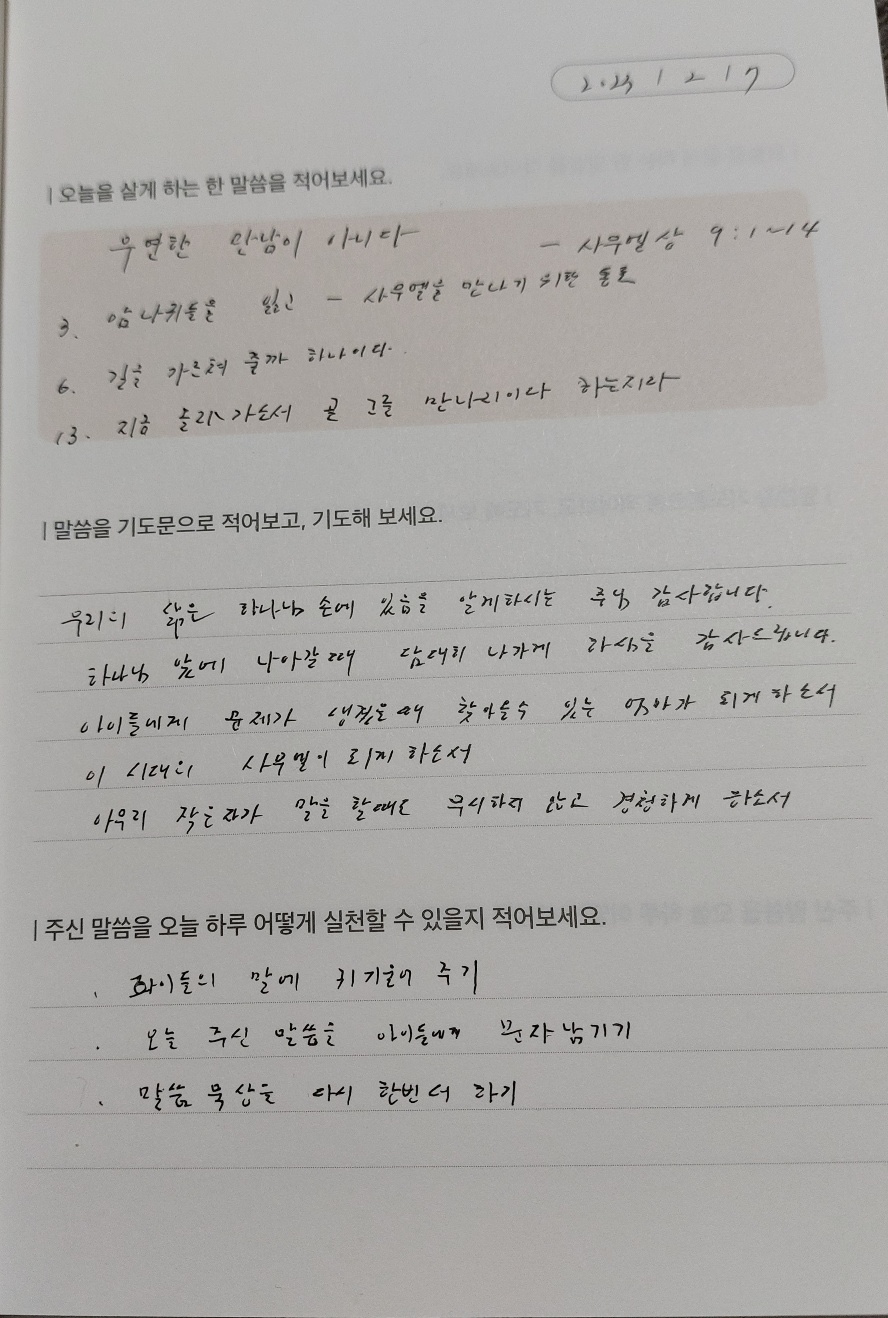 2023 12 17
| 오늘을 살게 하는 한 말씀을 적어보세요.
우연한 만남이 아니다 - 사무엘상 9:1~14
3. 암나귀들을 잃고 - 사무엘을 만나기 위한 통로
6. 길을 가르쳐 줄까 하나이다.
13. 지금 올라가소서 곧 그를 만나리이다 하는지라
| 말씀을 기도문으로 적어보고, 기도해 보세요.
우리의 삶은 하나님 손에 있음을 알게하시는 주님 감사합니다.
하나님 앞에 나아갈때 담대히 나가게 하심을 감사드립니다.
아이들에게 문제가 생겼을때 찾아올수 있는 엄마가 되게 하소서
이 시대의 사무엘이 되게 하소서
아무리 작은자가 말을 할때도 무시하지 않고 경청하게 하소서
| 주신 말씀을 오늘 하루 어떻게 실천할 수 있을지 적어보세요.
. 아이들의 말에 귀기울여 주기
. 오늘 주신 말씀을 아이들에게 문자 남기기
. 말씀 묵상을 다시 한번 더 하기